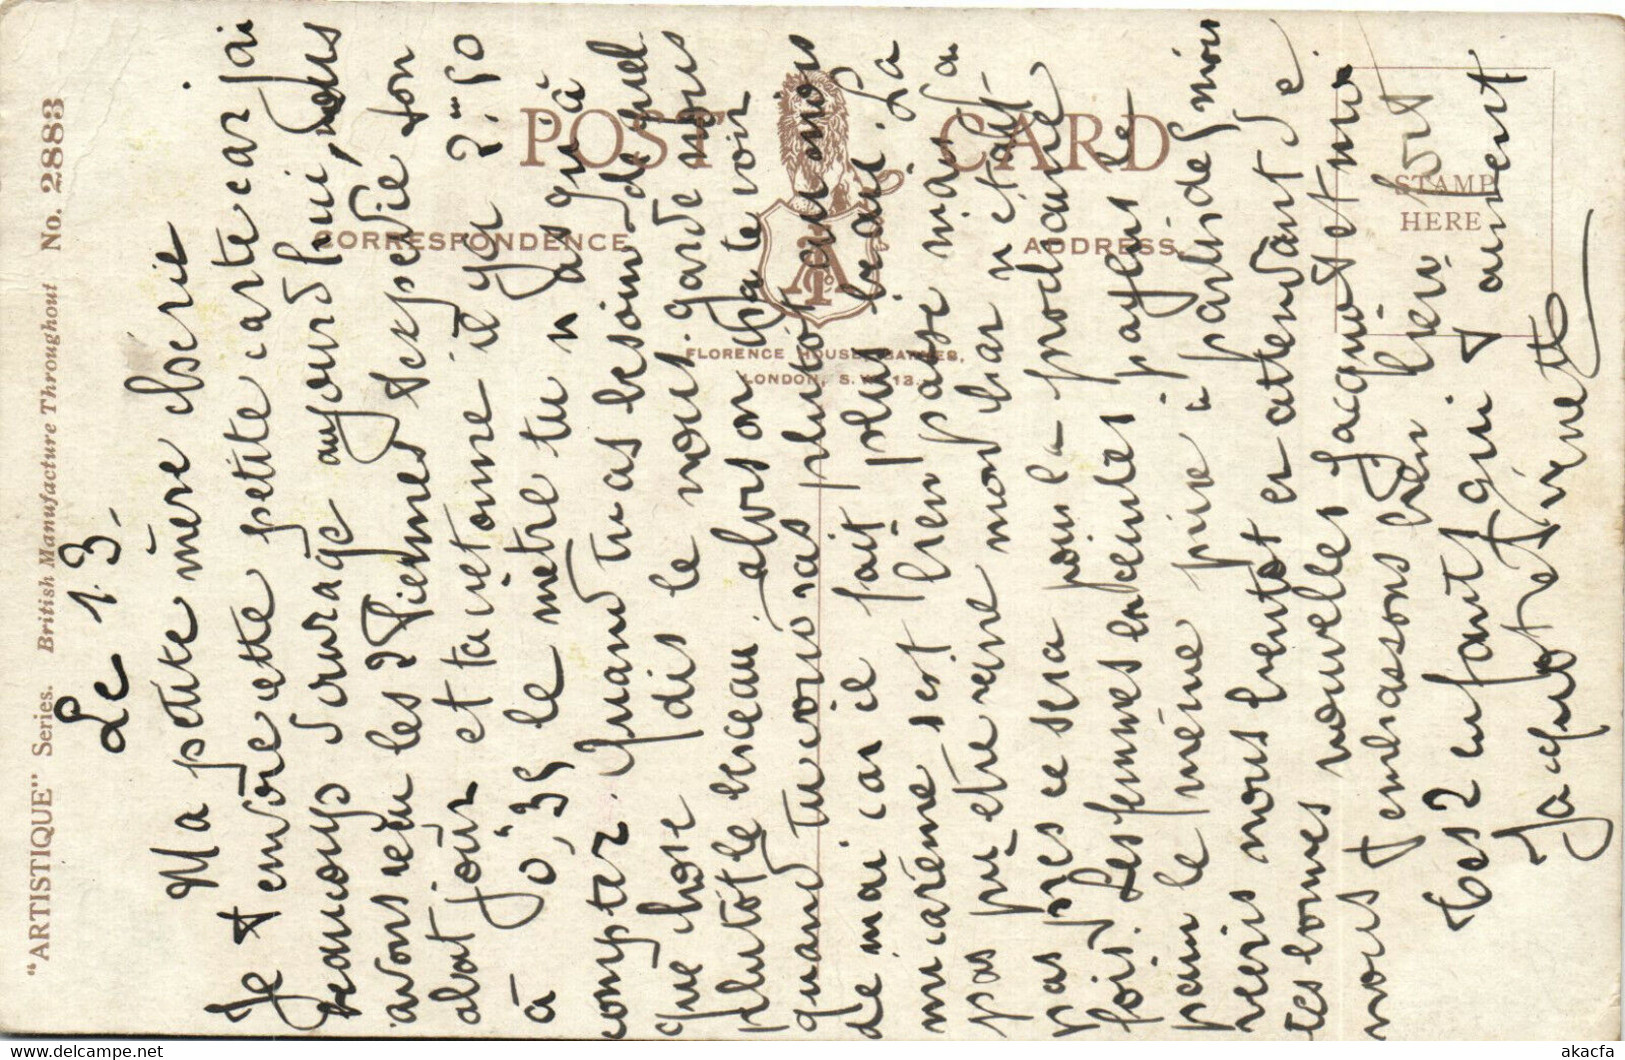 "ARTISTIQUE" Series. British Manufacture Throughout No. 2883
POST CARD
CORRESPONDENCE
ADDRESS
STAMP
HERE
FLORENCE HOUSE, BARNES,
LONDON, S.W. 13.
Le 13.
Ma petite mère chérie
Je t envoie cette petite carte car jai
beaucoup d ouvrage aujourd hui, nous
avons reçu les 2 Pierres j expedie ton
abat jour et ta cretonne il y a 2m 50
à 0,35 le mètre tu n as qu à
compter. Quand tu as besoin de quel
que chose dis le nous. garde nous
plutôt le berceau. alors on va te voir
quand tu voudras plutôt au mois
de mai car il fait plus beau. La
mi carême s est bien passé mais on a
pas pu être reine mon char n etant
pas près ce sera pour la prochaine
fois. Les femmes enceintes payent le
pain le même prix à partir de 5 mois
reviens nous bientot en attendant de
tes bonnes nouvelles Jacquot et moi
nous t embrassons bien bien fort
tes 2 enfants qui t aiment
Jacquot et Ninette
akacfa